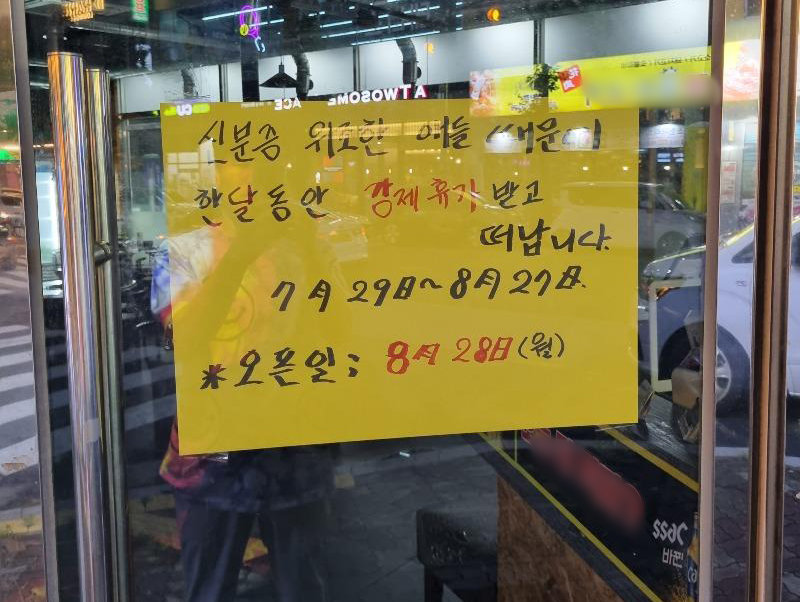 신분증 위조한 애들 때문이
한달동안 강제휴가 받고
떠납니다.
7月 29日~8月 27日.
*오픈일: 8月 28日(월)
A TWOSOME
ACE
CU
바꾼